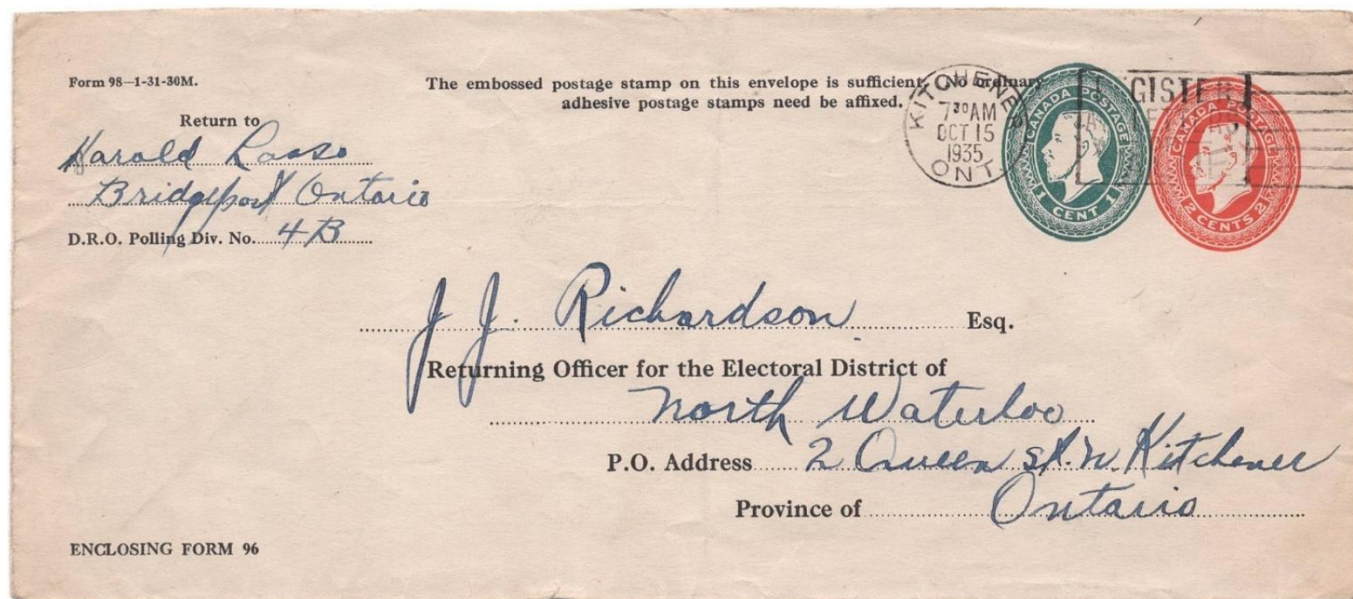 Form 98—1-31-30M.
The embossed postage stamp on this envelope is sufficient. No ordinary
adhesive postage stamps need be affixed.
KITCHENER
7 30 AM
OCT 15
1935
ONT.
GISTER
CANADA POSTAGE
1 CENT 1
CANADA POSTAGE
2 CENTS 2
Return to
Harold
Bridgeport Ontario
D.R.O. Polling Div. No. 4B
J J. Richardson Esq.
Returning Officer for the Electoral District of
North Waterloo
P.O. Address 2 Queen St. N. Kitchener
Province of Ontario
ENCLOSING FORM 96